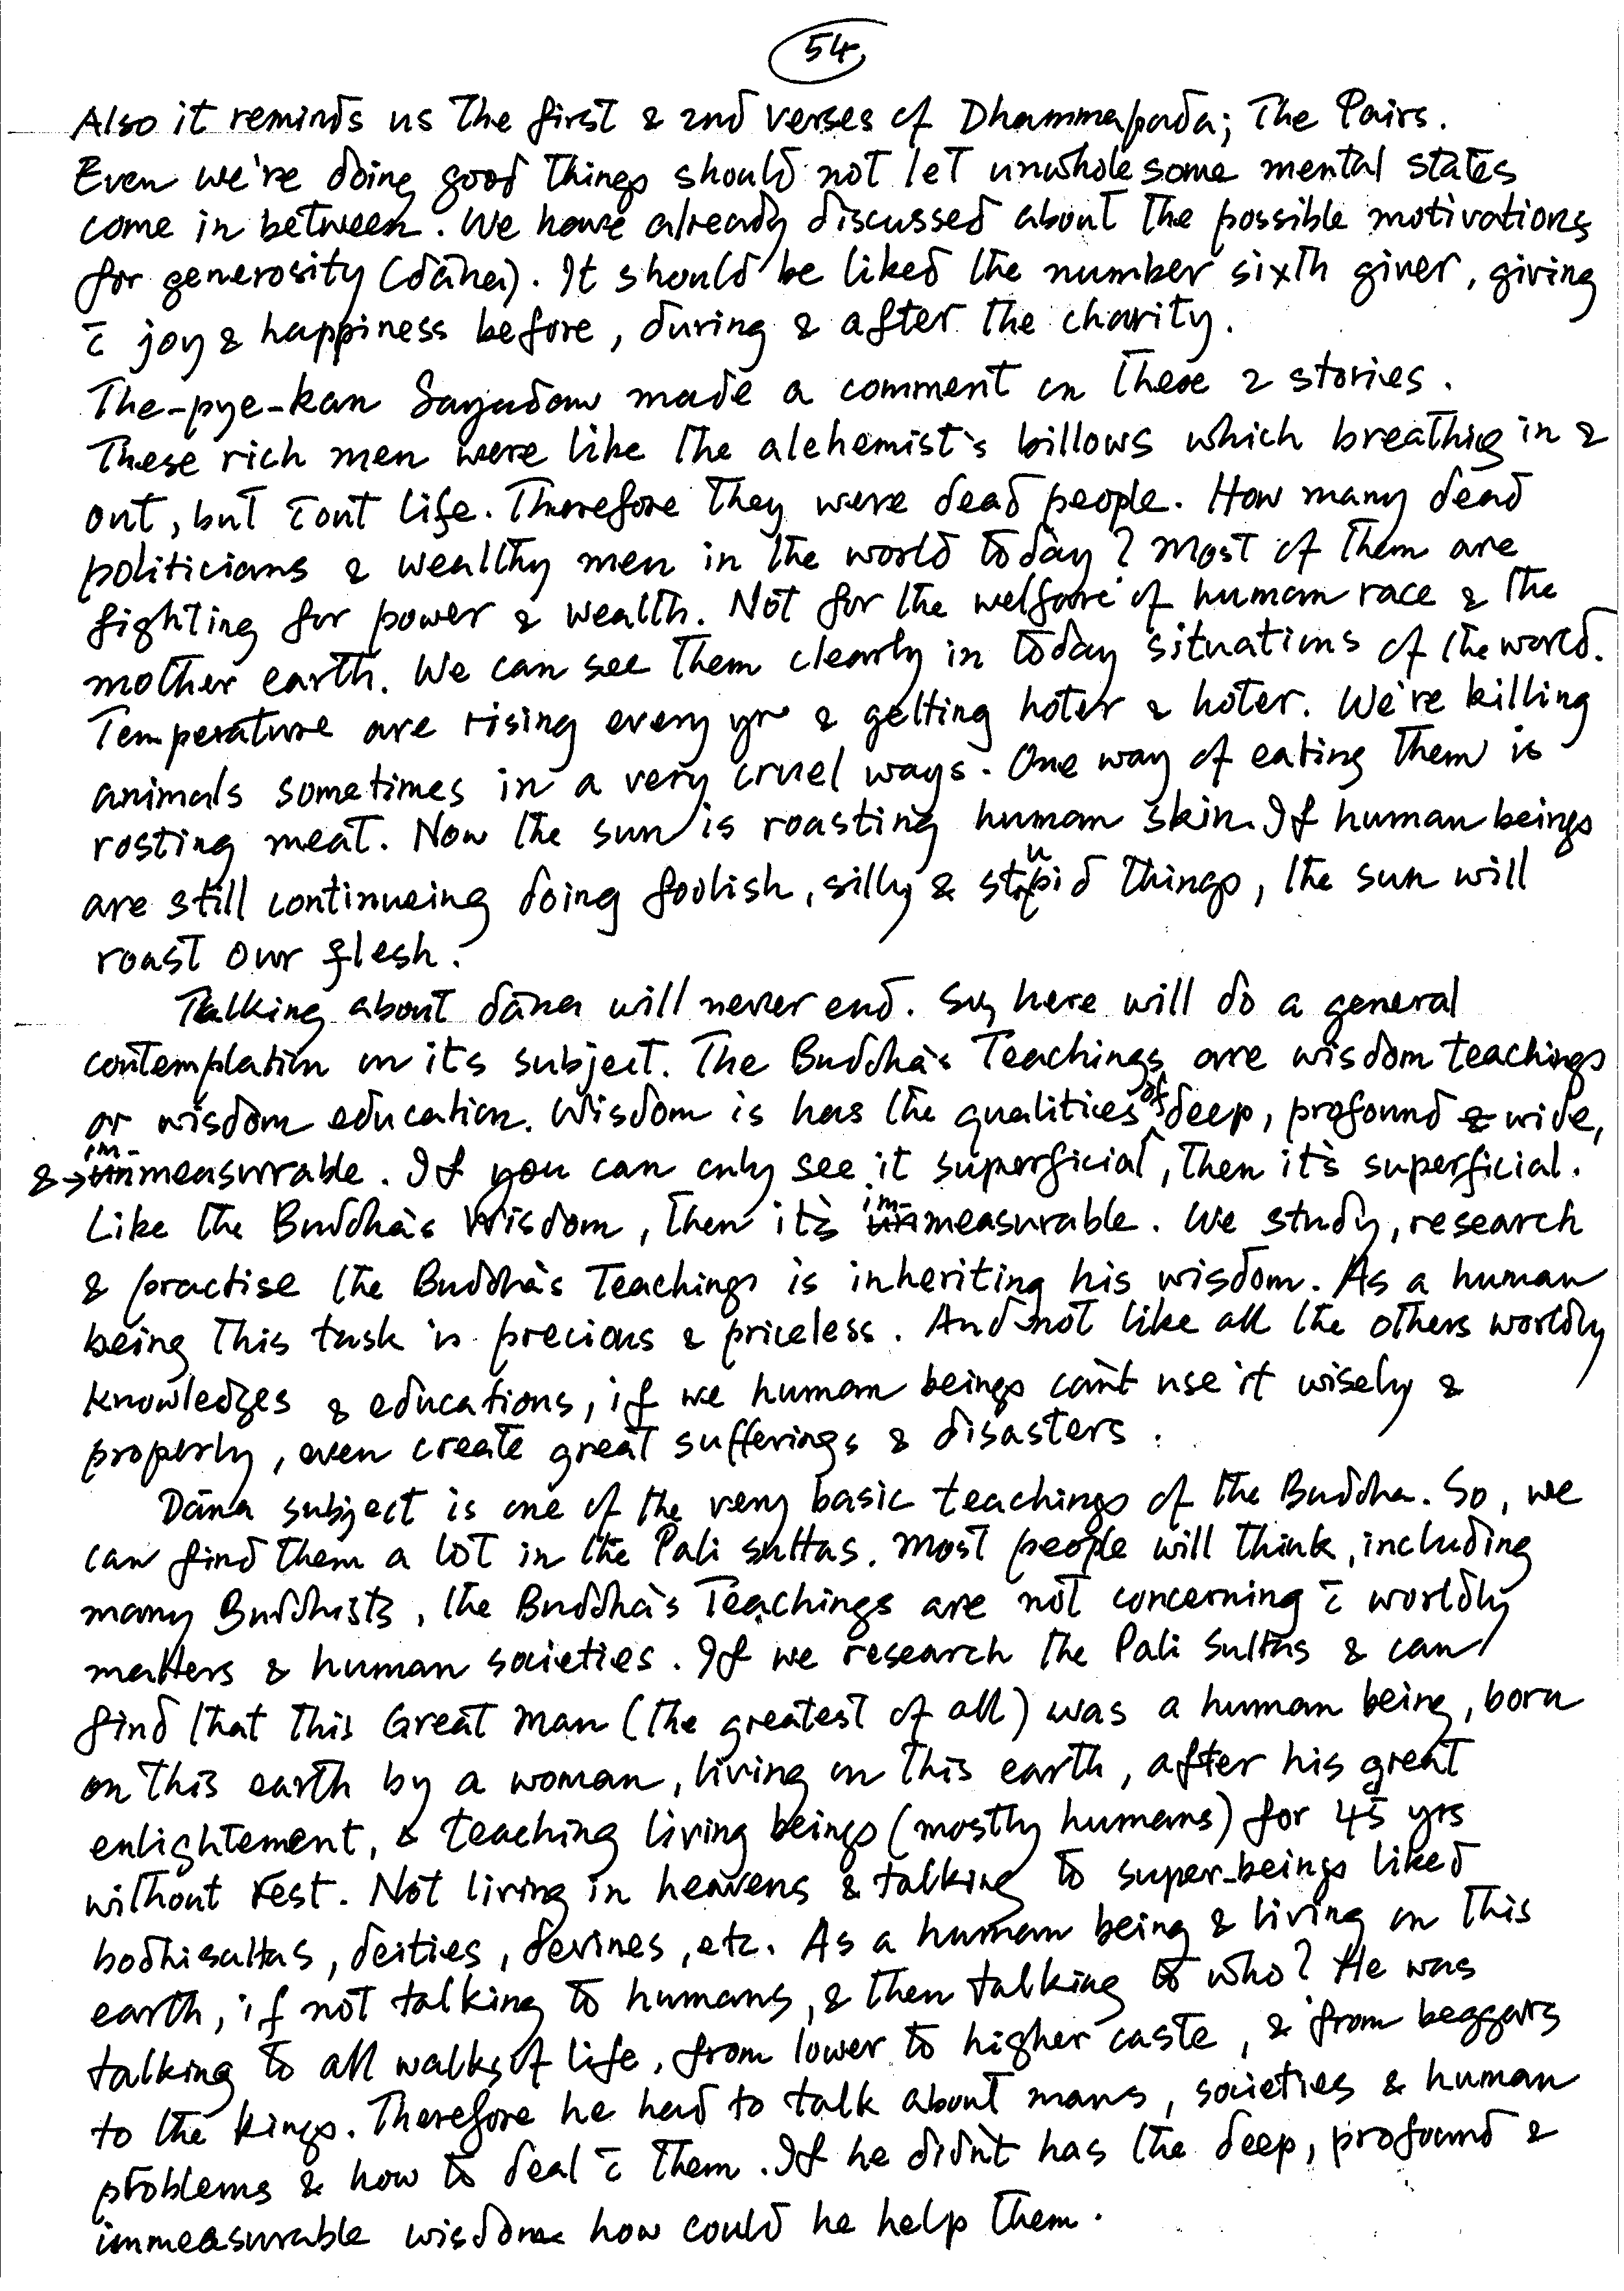 54
Also it reminds us the first & 2nd verses of Dhammapada; The Pairs.
Even we're doing good things should not let unwholesome mental states
come in between. We have already discussed about the possible motivations
for generosity (dāna). It should be liked the number sixth giver, giving
c̄ joy & happiness before, during & after the charity.
The-pye-kan Sayadaw made a comment on these 2 stories.
These rich men were like the alchemist's billows which breathing in &
out, but c̄out life. Therefore they were dead people. How many dead
politicians & wealthy men in the world today? Most of them are
fighting for power & wealth. Not for the welfare of human race & the
mother earth. We can see them clearly in today situations of the world.
Temperature are rising every yr & getting hoter & hoter. We're killing
animals sometimes in a very cruel ways. One way of eating them is
rosting meat. Now the sun is roasting human skin. If human beings
are still continueing doing foolish, silly & stupid things, the sun will
roast our flesh.
Talking about dāna will never end. So, here will do a general
contemplation on its subject. The Buddha's Teachings are wisdom teachings
or wisdom education. Wisdom is has the qualities of deep, profound & wide,
& immeasurable. If you can only see it superficial, then it's superficial.
Like the Buddha's Wisdom, then it's immeasurable. We study, research
& practise the Buddha's Teachings is inheriting his wisdom. As a human
being this task is precious & priceless. And not like all the others worldly
knowledges & educations, if we human beings can't use it wisely &
properly, even create great sufferings & disasters.
Dāna subject is one of the very basic teachings of the Buddha. So, we
can find them a lot in the Pali suttas. Most people will think, including
many Buddhists, the Buddha's Teachings are not concerning c̄ worldly
matters & human societies. If we research the Pali Suttas & can
find that this Great Man (the greatest of all) was a human being, born
on this earth by a woman, living on this earth, after his great
enlightement, & teaching living beings (mostly humans) for 45 yrs
without rest. Not living in heavens & talking to super-beings liked
bodhisattas, deities, devines, etc. As a human being & living on this
earth, if not talking to humans, & then talking to who? He was
talking to all walks of life, from lower to higher caste, & from beggars
to the kings. Therefore he had to talk about mans, societies & human
problems & how to deal c̄ them. If he didn't has the deep, profound &
immeasurable wisdom how could he help them.